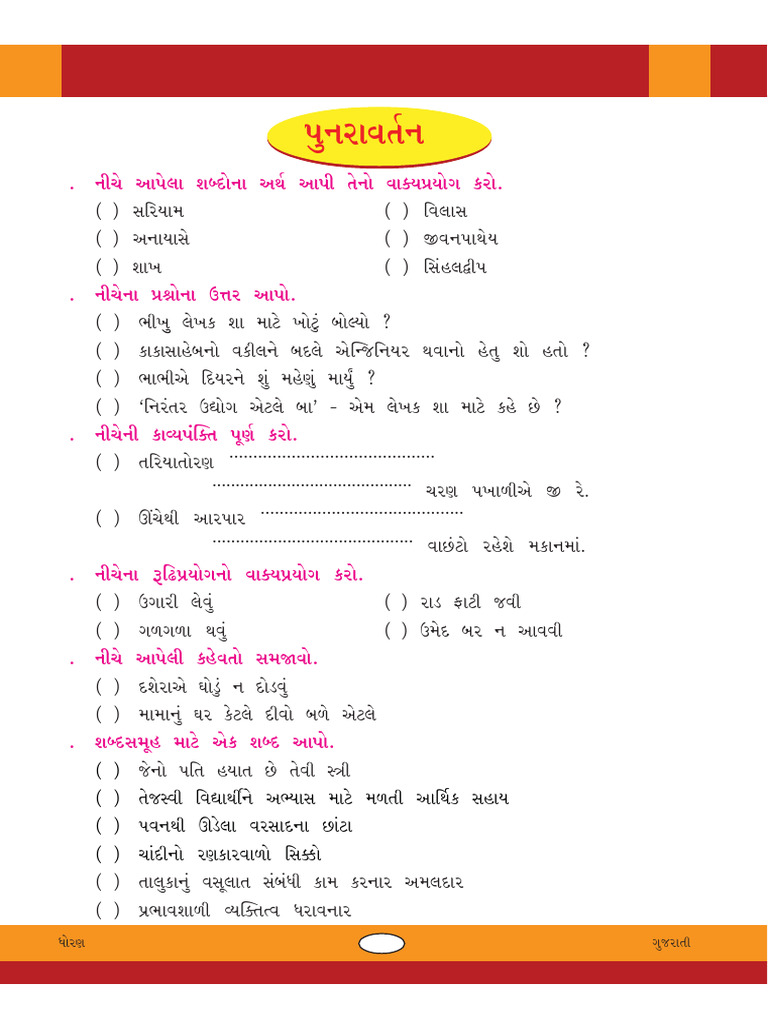 પુનરાવર્તન
. નીચે આપેલા શબ્દોના અર્થ આપી તેનો વાક્યપ્રયોગ કરો.
( ) સરિયામ ( ) વિલાસ
( ) અનાયાસે ( ) જીવનપાથેય
( ) શાખ ( ) સિંહલદ્વીપ
. નીચેના પ્રશ્નોના ઉત્તર આપો.
( ) ભીખુ લેખક શા માટે ખોટું બોલ્યો ?
( ) કાકાસાહેબનો વકીલને બદલે એન્જિનિયર થવાનો હેતુ શો હતો ?
( ) ભાભીએ દિયરને શું મહેણું માર્યું ?
( ) ‘નિરંતર ઉદ્યોગ એટલે બા’ - એમ લેખક શા માટે કહે છે ?
. નીચેની કાવ્યપંક્તિ પૂર્ણ કરો.
( ) તરિયાતોરણ ..........................................
......................................... ચરણ પખાળીએ જી રે.
( ) ઊંચેથી આરપાર ..........................................
......................................... વાછંટો રહેશે મકાનમાં.
. નીચેના રૂઢિપ્રયોગનો વાક્યપ્રયોગ કરો.
( ) ઉગારી લેવું ( ) રાડ ફાટી જવી
( ) ગળગળા થવું ( ) ઉમેદ બર ન આવવી
. નીચે આપેલી કહેવતો સમજાવો.
( ) દશેરાએ ઘોડું ન દોડવું
( ) મામાનું ઘર કેટલે દીવો બળે એટલે
. શબ્દસમૂહ માટે એક શબ્દ આપો.
( ) જેનો પતિ હયાત છે તેવી સ્ત્રી
( ) તેજસ્વી વિદ્યાર્થીને અભ્યાસ માટે મળતી આર્થિક સહાય
( ) પવનથી ઊડેલા વરસાદના છાંટા
( ) ચાંદીનો રણકારવાળો સિક્કો
( ) તાલુકાનું વસૂલાત સંબંધી કામ કરનાર અમલદાર
( ) પ્રભાવશાળી વ્યક્તિત્વ ધરાવનાર
ધોરણ ગુજરાતી